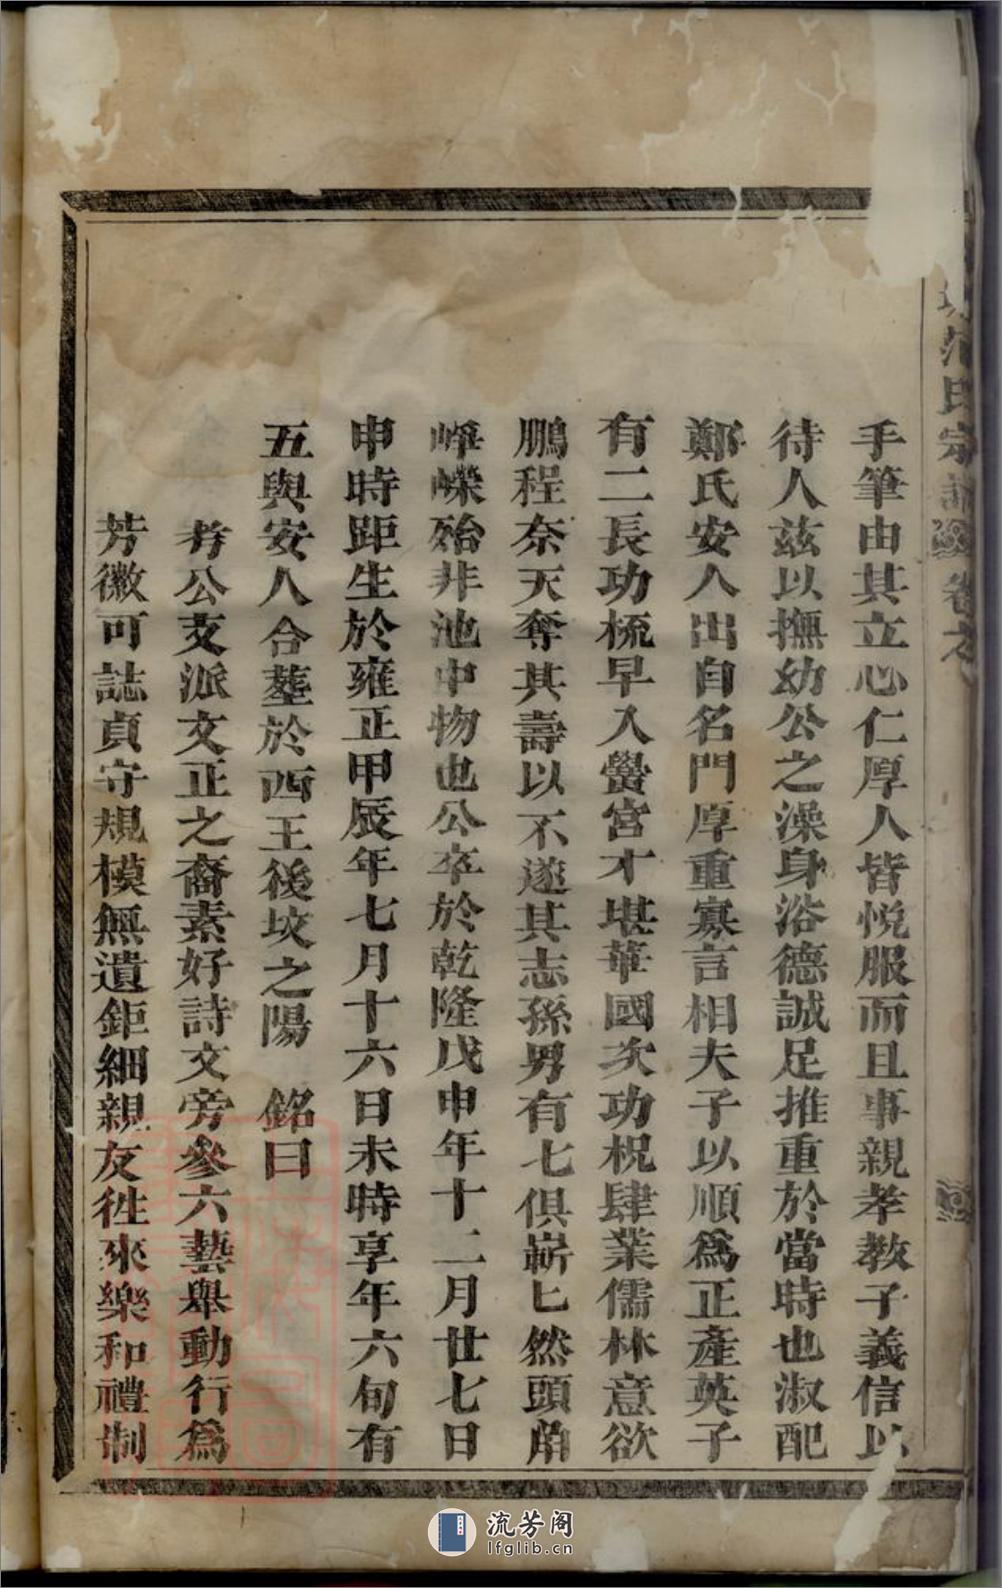 范氏宗譜 卷之
手筆由其立心仁厚人皆悅服而且事親孝教子義信以
待人茲以撫幼公之澡身浴德誠足推重於當時也淑配
鄭氏安人出自名門厚重寡言相夫子以順爲正產英子
有二長功梳早入黌宮才堪華國次功梲肆業儒林意欲
鵬程奈天奪其壽以不遂其志孫男有七俱嶄匕然頭角
崢嶸殆非池中物也公卒於乾隆戊申年十二月廿七日
申時距生於雍正甲辰年七月十六日未時享年六旬有
五與安人合塟於西王後坟之陽 銘曰
考公支派文正之裔素好詩文旁參六藝舉動行爲
芳徽可誌貞守規模無遺鉅細親友徃來樂和禮制
流芳阁
lfglib.cn